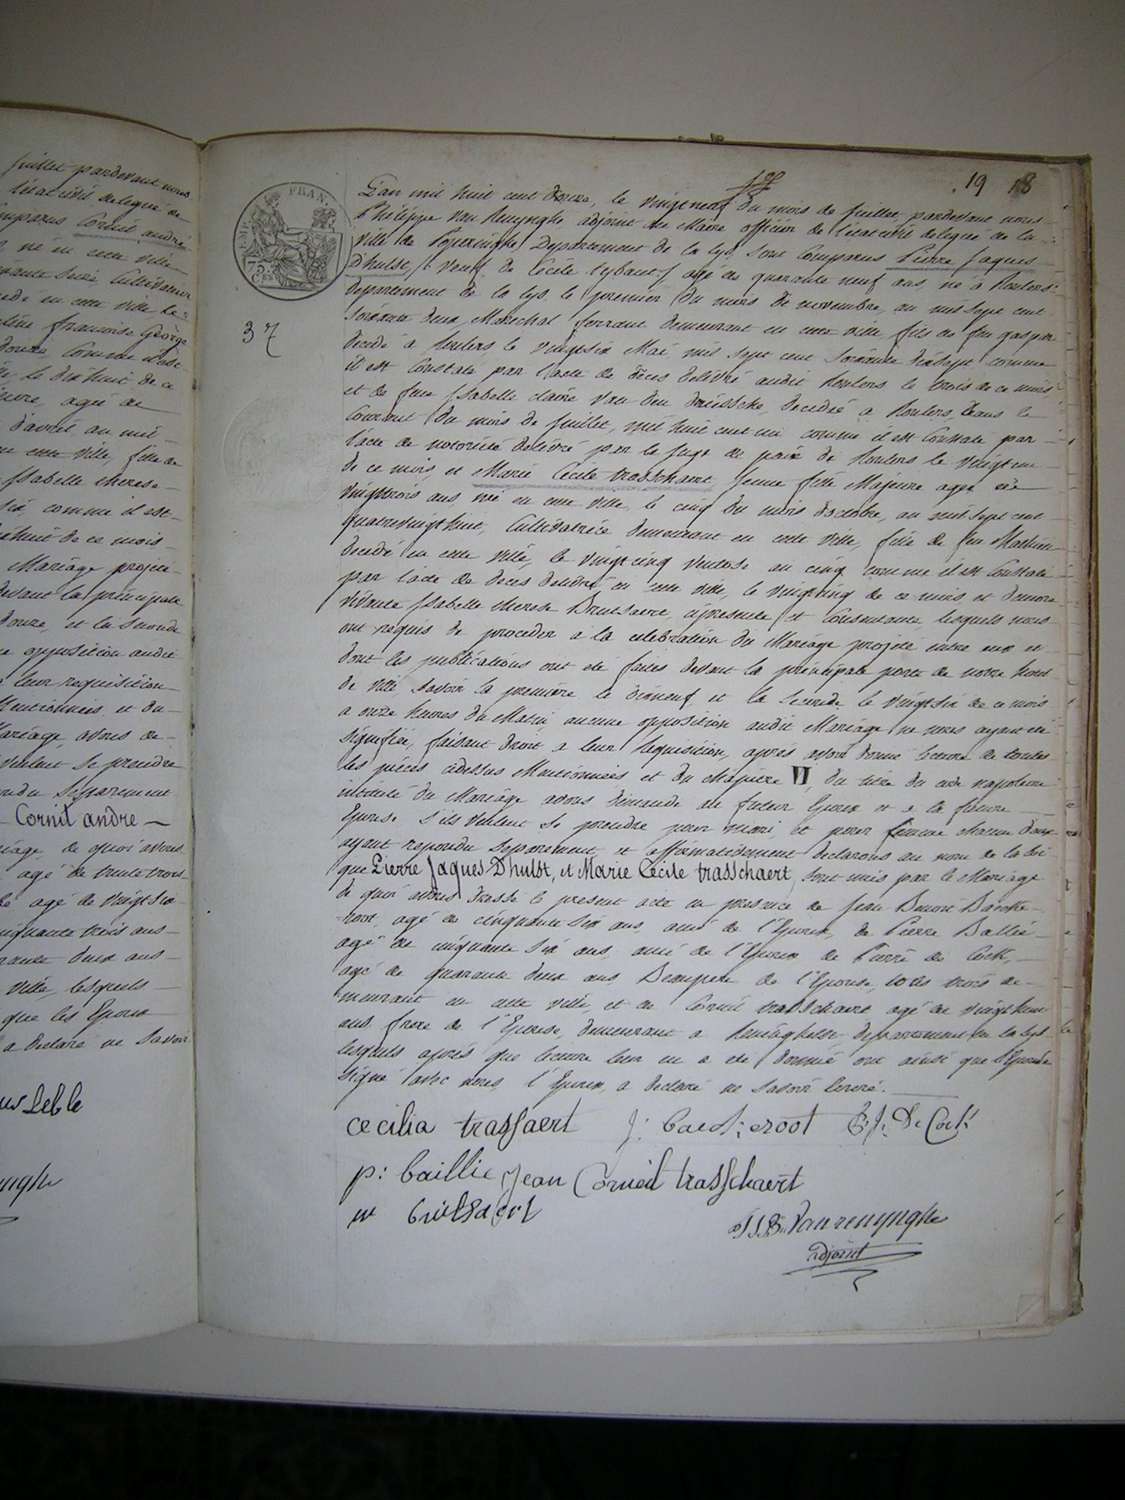 fuillet pardevant nous
l'état civil delegué de
comparus Cornil andré
né en cette ville
Cultivateur
decedé en cette ville le
françoise George
douze comme il est
le dix huit de ce
agée de
d'avril au mil
en cette ville, fille de
Isabelle therese
comme il est
de ce mois
Mariage projeté
devant la principale
douze, et la seconde
opposition audit
leur requisition
Mentionnées et du
Mariage avons de
veulent se prendre
repondu separement
Cornil andre
de quoi avons
agé de trente trois
agé de vingt six
cinquante trois ans
deux ans
ville, lesquels
que les Epoux
a declaré ne savoir
Leble
19 18
FRAN.
37
L'an mil huit cent douze, le vingt neuf du mois de fuillet, pardevant nous
Philippe van Renynghe, adjoint du Maire officier de l'état civil delegué de la
ville de Poperinghe Departement de la lys, sont comparus Pierre Jaques
Dhulst, veuf de Cécile Lybaert, agé de quarante neuf ans, né à Roulers
departement de la lys le premier du mois de novembre, au mil sept cent
soixante deux Marechal ferrant demeurant en cette ville fils de feu gaspar
decedé à Roulers le vingt six Mai mil sept cent soixante dix sept comme
il est Constaté par l'acte de deces delivré audit Roulers le trois de ce mois
et de feue Isabelle claire Van den driessche, decedée à Roulers dans le
Courant du mois de fuillet, mil huit cent un comme il est Constaté par
l'acte de notorieté delivré par le juge de paix de Roulers le vingt un
de ce mois, et Marie Cécile trasschaert Jeune fille Majeure agée de
vingt trois ans née en cette ville, le cinq du mois d'octobre, au mil sept cent
quatre vingt huit, Cultivatrice demeurant en cette ville, fille de feu Mathieu
decedé en cette ville, le vingt cinq ventose au cinq comme il est Constaté
par l'acte de deces delivré en cette ville, le vingt cinq de ce mois et demere
vivante Isabelle therese Brutsaert, ci presente et Consentante lesquels nous
ont requis de proceder à la celebration du Mariage projeté entre eux et
dont les publications ont été faites devant la principale porte de notre Hotel
de ville savoir la première le dix neuf et la seconde le vingt six de ce mois
a onze heures du Matin aucune opposition audit Mariage ne nous ayant été
signifiée, faisant droit a leur requisition, apres avoir donné lecture de toutes
les pièces cidessus Mentionnées et du chapitre VI, du titre du code napoleon
intitulé du Mariage avons demandé au futur Epoux et a la future
Epouse s'ils veulent se prendre pour mari et pour femme chacun d'eux
ayant repondu separement et affirmativement declarons au nom de la loi
que Pierre Jaques Dhulst, et Marie Cécile trasschaert, sont unis par le Mariage
de quoi avons dressé le present acte en presence de Jean Benoit Backe
root, agé de cinquante six ans ami de l'Epoux, de Pierre Baillie
agé de cinquante six ans, ami de l'Epoux de Pierre de Cock,
agé de quarante deux ans Beaupere de l'Epouse, tous trois de
meurant en cette ville, et de Cornil trasschaert agé de vingt huit
ans, frere de l'Epouse, demeurant a Reninghelst departement de la Lys
lesquels après que lecture leur en a été donnée ont ainsi que l'Epouse
signé avec nous l'Epoux, a declaré ne savoir écrire.
cecilia trassaert J: backeroot P. J. De Cock
p: baillie Jean Corneil trasschaert
Van renynghe
adjoint